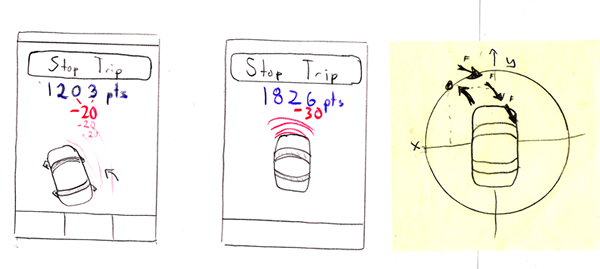 Stop Trip
1203 pts
-20
-20
-20
Stop Trip
1826 pts
-30
y
F
F
F
x